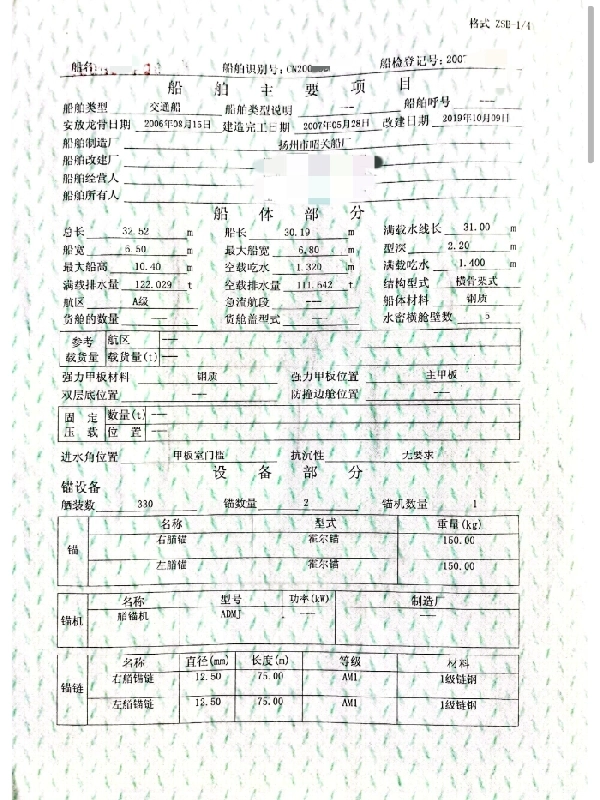 格式 ZSB-1/4
船名 船舶识别号:CN200 船检登记号:200
船舶主要项目
船舶类型 交通船 船舶类型说明 --- 船舶呼号 ---
安放龙骨日期 2006年08月15日 建造完工日期 2007年05月28日 改建日期 2019年10月09日
船舶制造厂 扬州市昭关船厂
船舶改建厂
船舶经营人
船舶所有人
船体部分
总长 32.52 m 船长 30.19 m 满载水线长 31.00 m
船宽 6.50 m 最大船宽 6.80 m 型深 2.20 m
最大船高 10.40 m 空载吃水 1.320 m 满载吃水 1.400 m
满载排水量 122.029 t 空载排水量 111.542 t 结构型式 横骨架式
航区 A级 急流航段 --- 船体材料 钢质
货舱的数量 --- 货舱盖型式 --- 水密横舱壁数 5
参考 航区 ---
载货量 载货量(t) ---
强力甲板材料 钢质 强力甲板位置 主甲板
双层底位置 --- 防撞边舱位置 ---
固定 数量(t) ---
压载 位置 ---
进水角位置 甲板室门槛 抗沉性 无要求
设备部分
锚设备
舾装数 330 锚数量 2 锚机数量 1
名称 型式 重量(kg)
锚 右艏锚 霍尔锚 150.00
左艏锚 霍尔锚 150.00
名称 型号 功率(kW) 制造厂
锚机 艏锚机 ADMJ --- ---
名称 直径(mm) 长度(m) 等级 材料
锚链 右艏锚链 12.50 75.00 AM1 1级链钢
左艏锚链 12.50 75.00 AM1 1级链钢